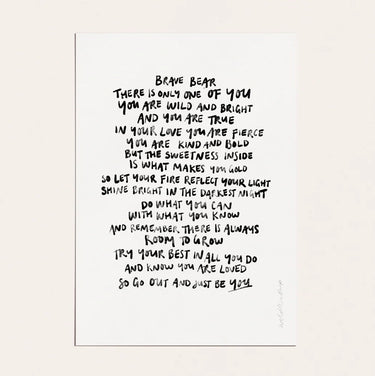 BRAVE BEAR
THERE IS ONLY ONE OF YOU
YOU ARE WILD AND BRIGHT
AND YOU ARE TRUE
IN YOUR LOVE YOU ARE FIERCE
YOU ARE KIND AND BOLD
BUT THE SWEETNESS INSIDE
IS WHAT MAKES YOU GOLD
SO LET YOUR FIRE REFLECT YOUR LIGHT
SHINE BRIGHT IN THE DARKEST NIGHT
DO WHAT YOU CAN
WITH WHAT YOU KNOW
AND REMEMBER THERE IS ALWAYS
ROOM TO GROW
TRY YOUR BEST IN ALL YOU DO
AND KNOW YOU ARE LOVED
SO GO OUT AND JUST BE YOU